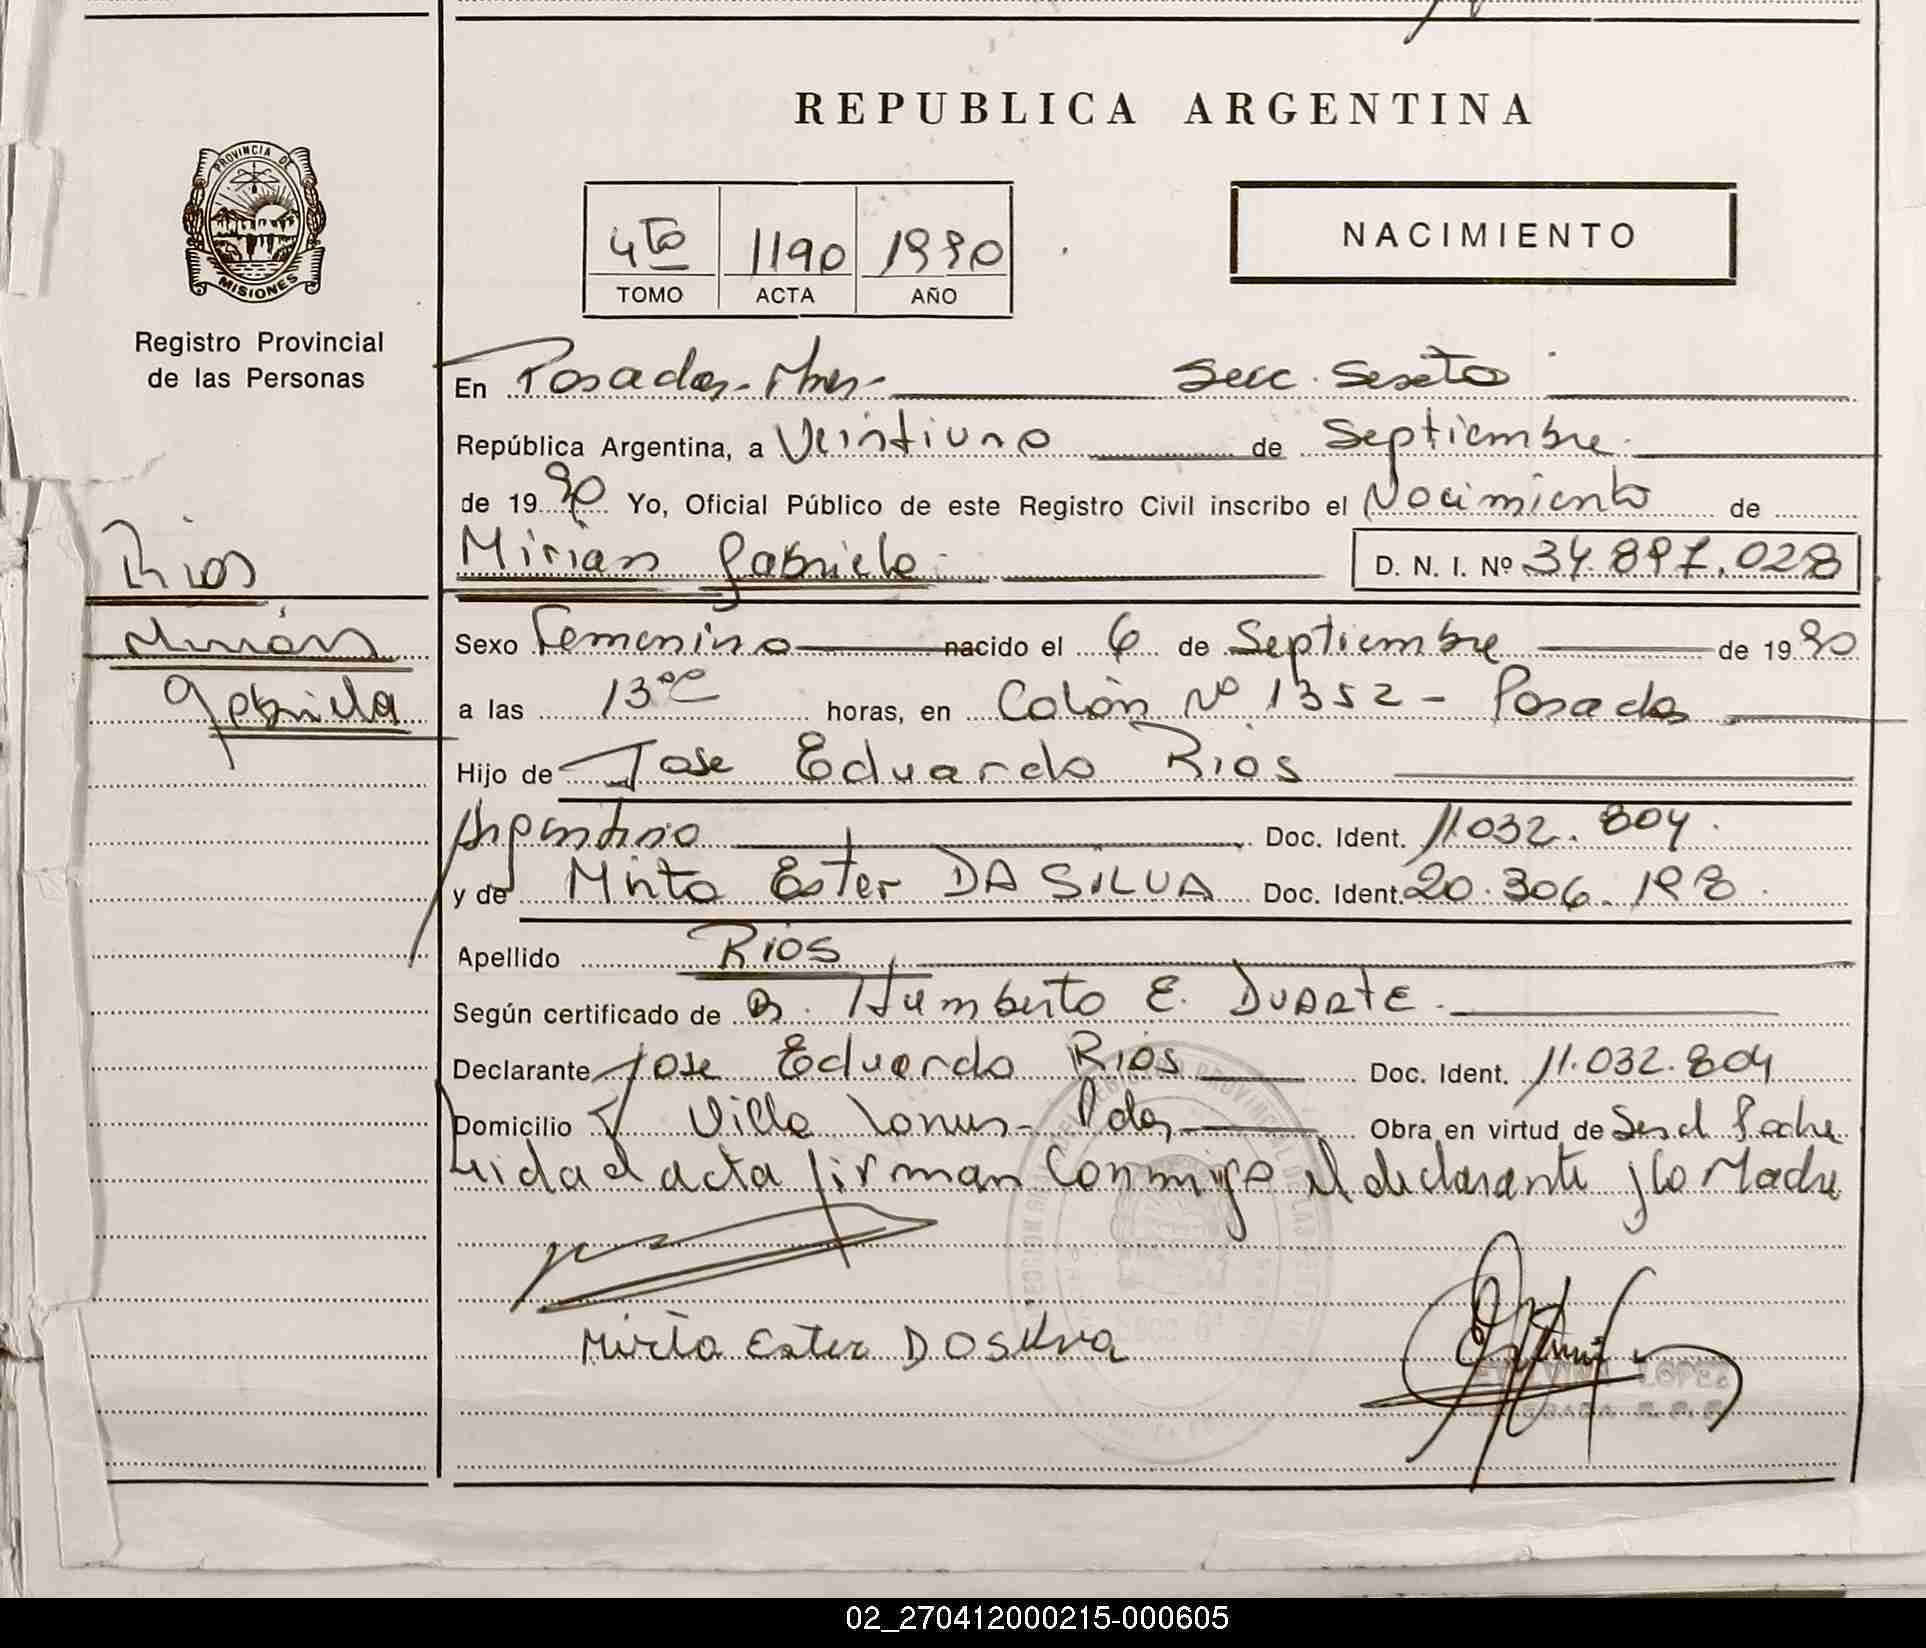 REPUBLICA ARGENTINA
PROVINCIA DE
MISIONES
Registro Provincial
de las Personas
4to 1190 1990
TOMO ACTA AÑO
NACIMIENTO
En Posadas - Mnes - Secc. Sexta
República Argentina, a Veintiuno de Septiembre
de 1990 Yo, Oficial Público de este Registro Civil inscribo el Nacimiento de
Mirian Gabriela D. N. I. Nº 34.897.028
Rios
Mirian
Gabriela
Sexo Femenino nacido el 6 de Septiembre de 1990
a las 13 horas, en Colón Nº 1352 - Posadas
Hijo de Jose Eduardo Rios
Argentino Doc. Ident. 11.032.804.
y de Mirta Ester DA SILVA Doc. Ident. 20.306.198.
Apellido Rios
Según certificado de Dr. Humberto E. DUARTE.
Declarante Jose Eduardo Rios Doc. Ident. 11.032.804
Domicilio Villa Lanus - Pdas Obra en virtud de Ser el Padre
Leida el acta firman Conmigo el declarante y la Madre
Mirta Ester DA Silva
02_270412000215-000605